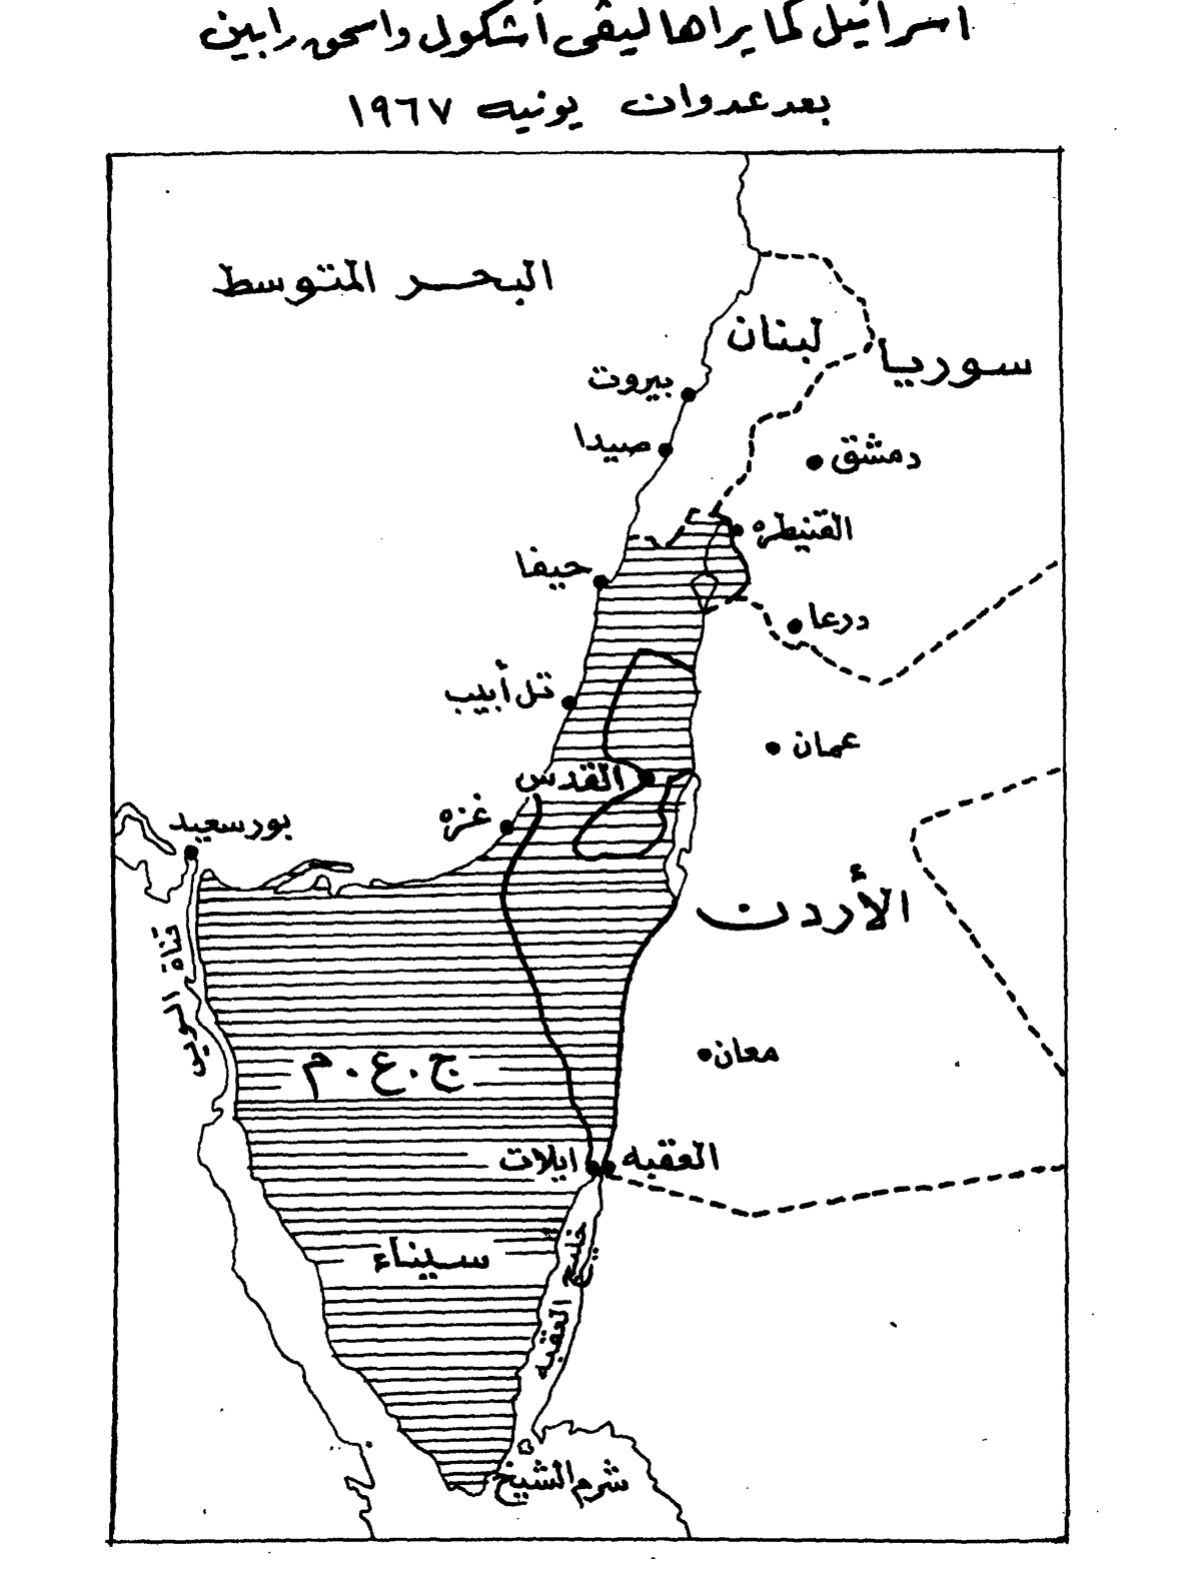 اسرائيل كما يراها ليفى أشكول واسحق رابين
بعد عدوان يونيه ١٩٦٧
البحر المتوسط
لبنان
سوريا
بيروت
صيدا
دمشق
القنيطره
حيفا
درعا
تل أبيب
عمان
القدس
غزه
بور سعيد
الأردن
قناة السويس
معان
ج.ع.م
ايلات
العقبه
سيناء
خليج العقبه
شرم الشيخ